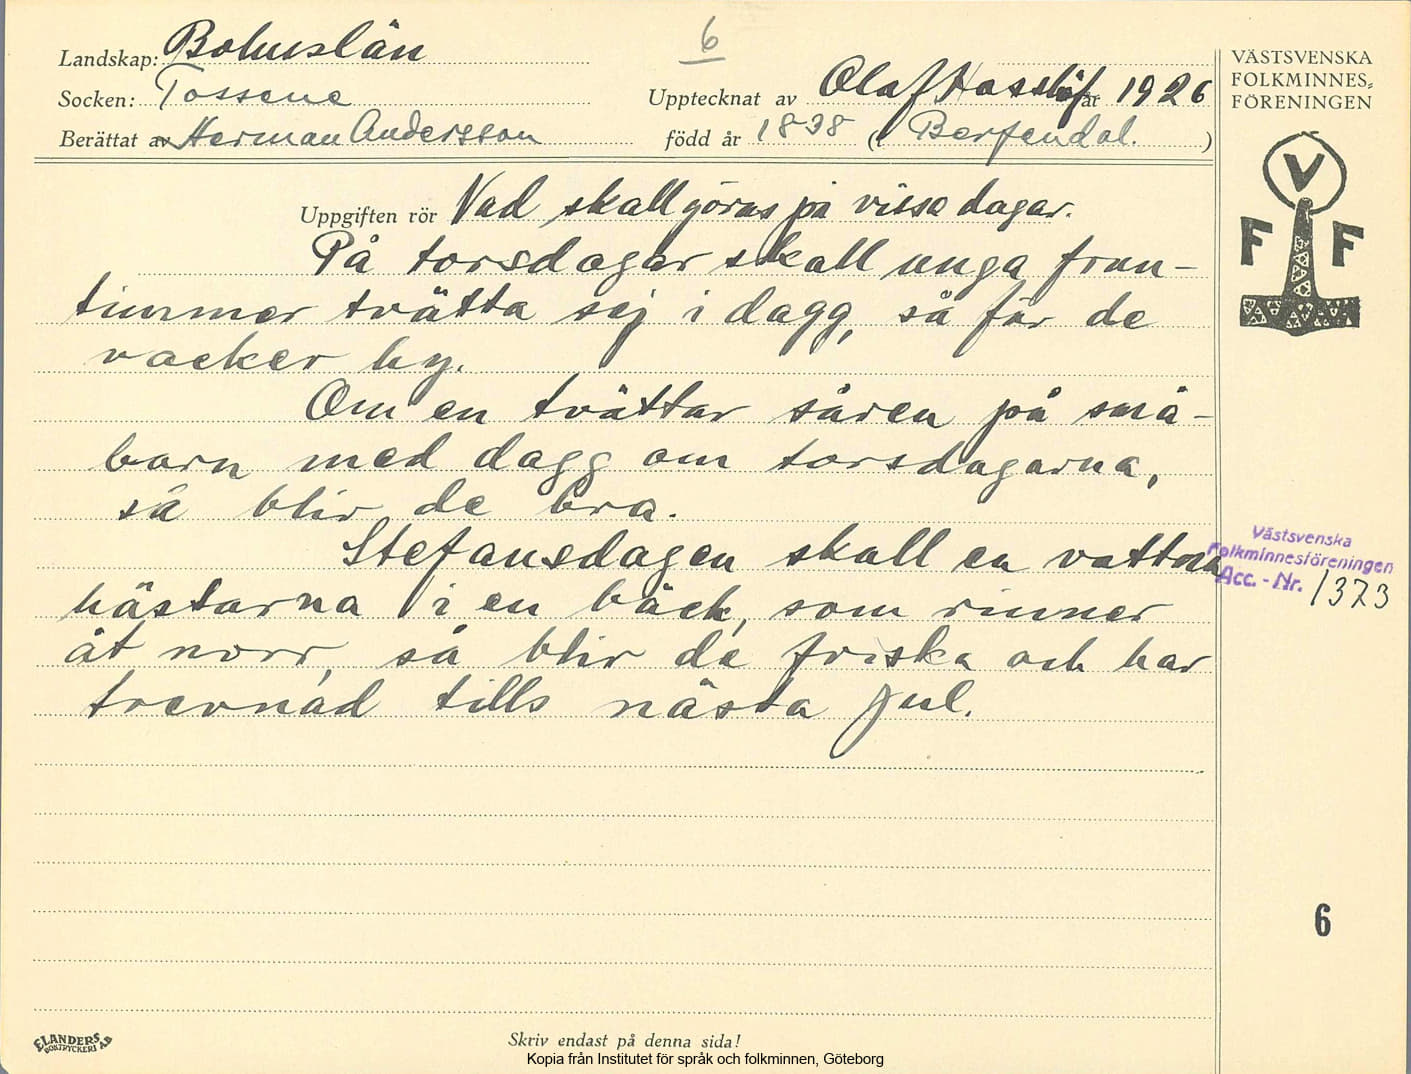 6
Landskap: Bohuslän
Socken: Tossene
Upptecknat av Olof Hasslöf år 1926
Berättat av Herman Andersson
född år 1838 (i Berfendal.)
VÄSTSVENSKA
FOLKMINNES-
FÖRENINGEN
V
F F
Uppgiften rör Vad skall göras på vissa dagar.
På torsdagar skall unga frun-
timmer tvätta sej i dagg, så får de
vacker hy.
Om en tvättar såren på små-
barn med dagg om torsdagarna,
så blir de bra.
Stefansdagen skall en vattna
hästarna i en bäck, som rinner
åt norr, så blir de friska och har
trevnad tills nästa jul.
Västsvenska
Folkminnesföreningen
Acc. - Nr. 1373
6
ELANDERS
BOKTRYCKERI AB
Skriv endast på denna sida!
Kopia från Institutet för språk och folkminnen, Göteborg